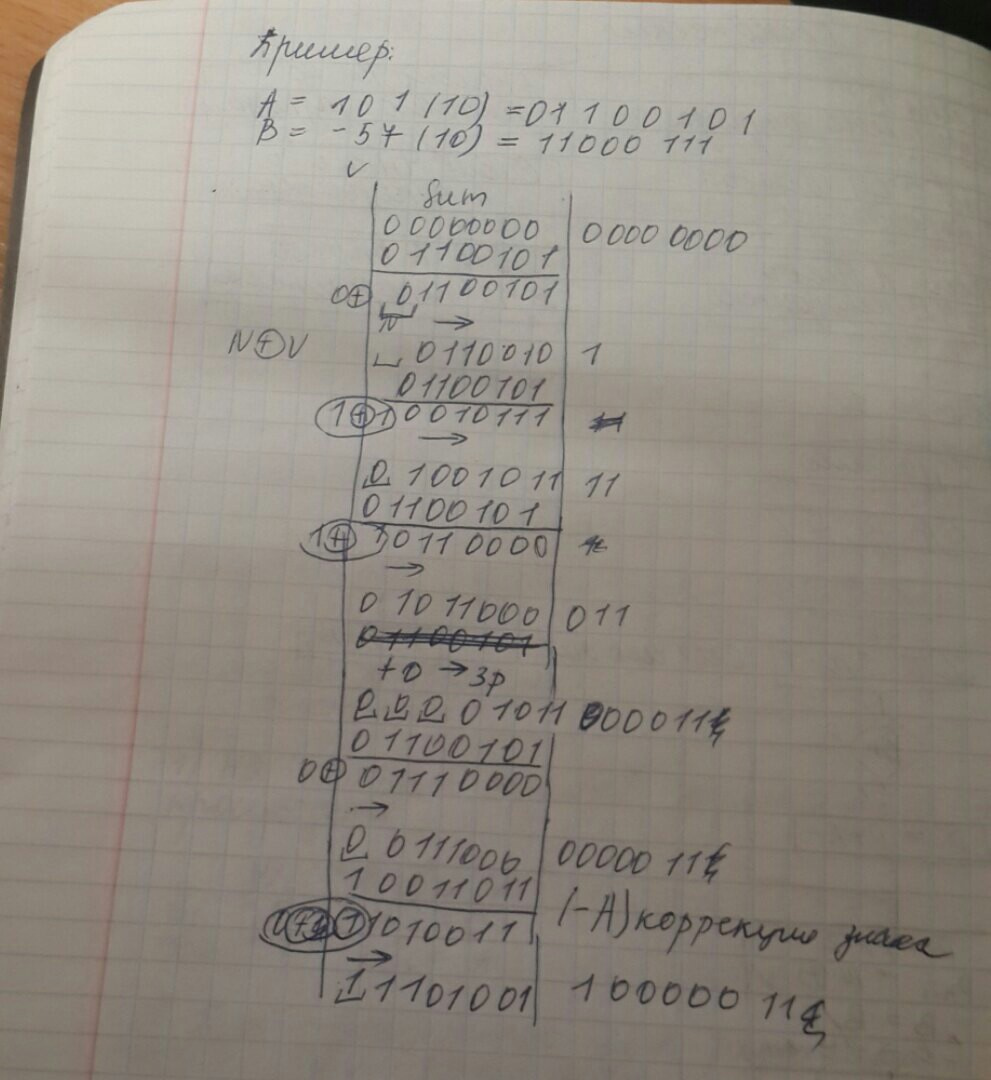 Пример:
A = 101 (10) = 01100101
B = -57 (10) = 11000111
V
Sum
00000000 0000 0000
01100101
0⊕ 01100101
N →
N⊕V
0110010 1
01100101
1⊕10010111
→
01001011 11
01100101
1⊕10110000
→
01011000 011
01100101
+0 → 3р
00001011 000011
01100101
0⊕ 01110000
→
00111000 00000 11
10011011 (-A) коррекция знака
11010011
→
11101001 10000011